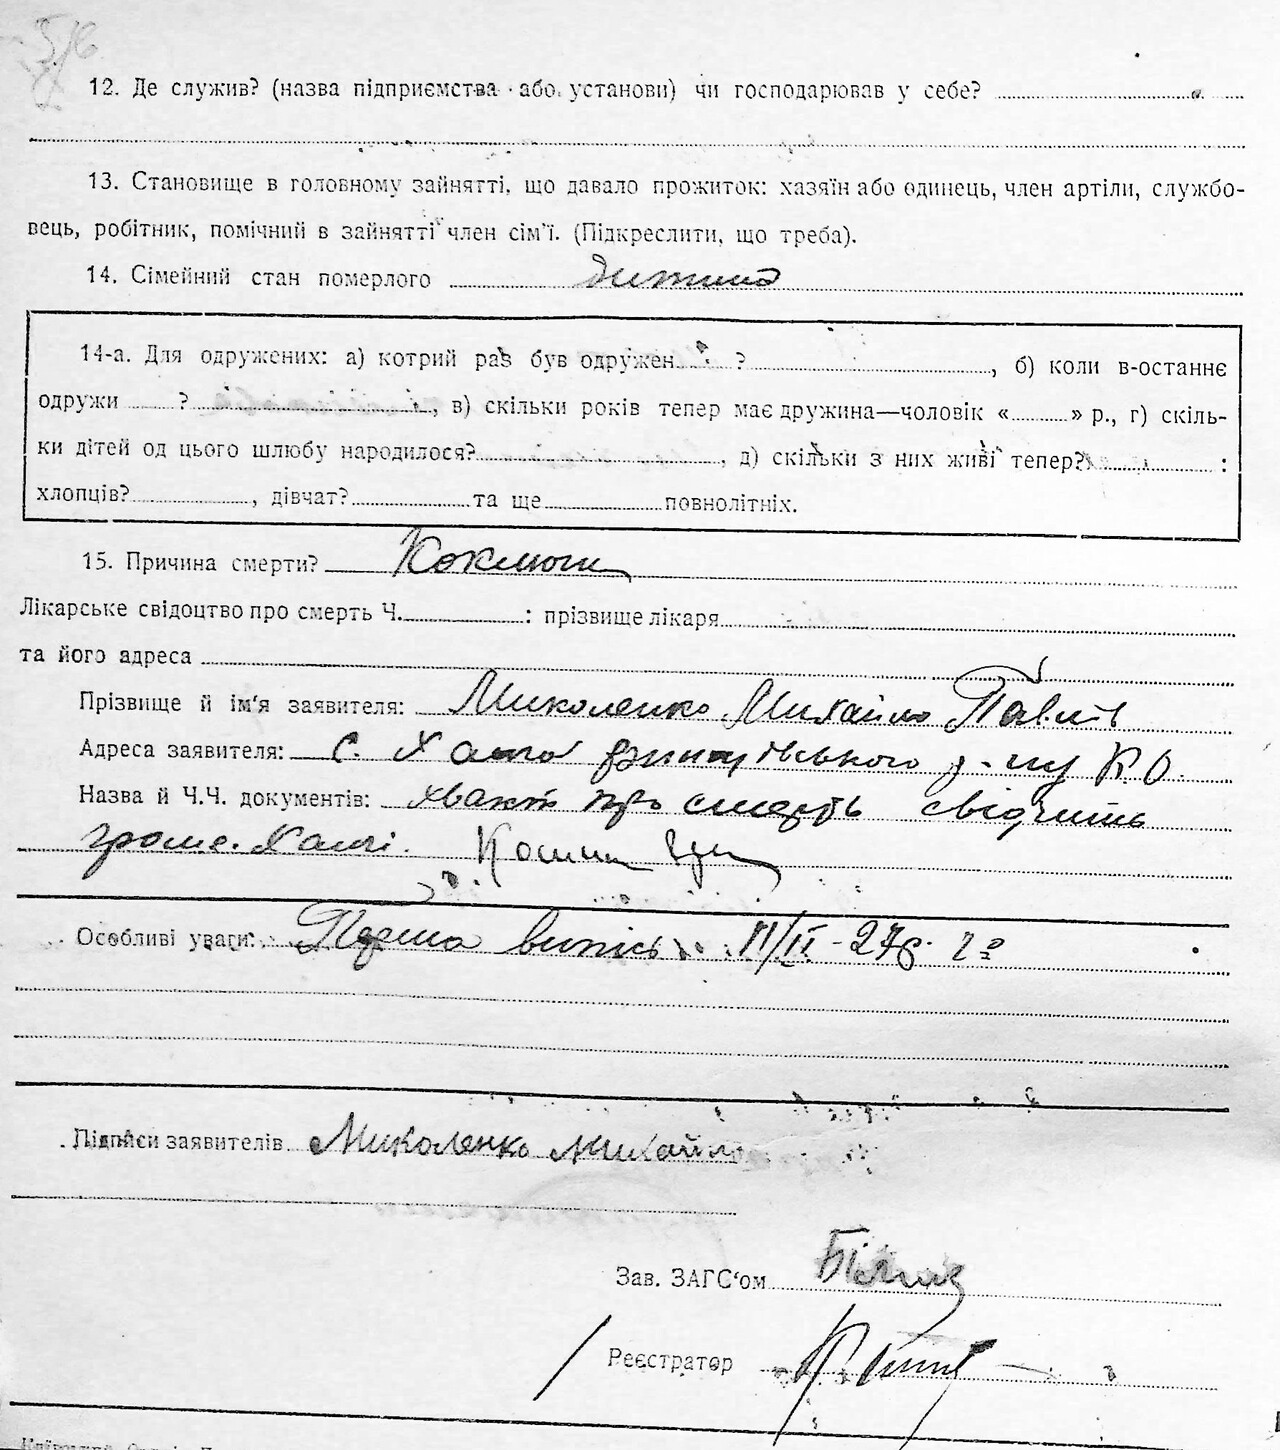 12. Де служив? (назва підприємства або установи) чи господарював у себе?
13. Становище в головному зайнятті, що давало прожиток: хазяїн або одинець, член артіли, службо-
вець, робітник, помічний в зайнятті член сім'ї. (Підкреслити, що треба).
14. Сімейний стан померлого дитина
14-а. Для одружених: а) котрий раз був одружен ?, б) коли в-останнє
одружи ?, в) скільки років тепер має дружина—чоловік « » р., г) скіль-
ки дітей од цього шлюбу народилося?, д) скільки з них живі тепер? :
хлопців?, дівчат? та ще повнолітніх.
15. Причина смерти? Коклюш
Лікарське свідоцтво про смерть Ч. : прізвище лікаря
та його адреса
Прізвище й ім'я заявителя: Миколенко Михайло Павлів
Адреса заявителя: с. Хало р-ну К.О.
Назва й Ч.Ч. документів: про смерть свідчить
гром.
Особливі уваги: Перша випись 11/II-27р.
Підписи заявителів Миколенко Михайло
Зав. ЗАГС'ом
Реєстратор